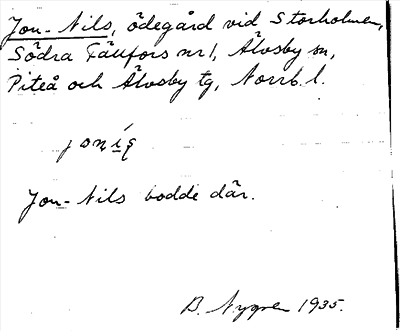 Jon-Nils, ödegård vid Storholmen,
Södra Fällfors nr 1, Älvsby sn,
Piteå och Älvsby tg, Norrb. l.
Jon-Nils bodde där.
B. Nygren 1935.